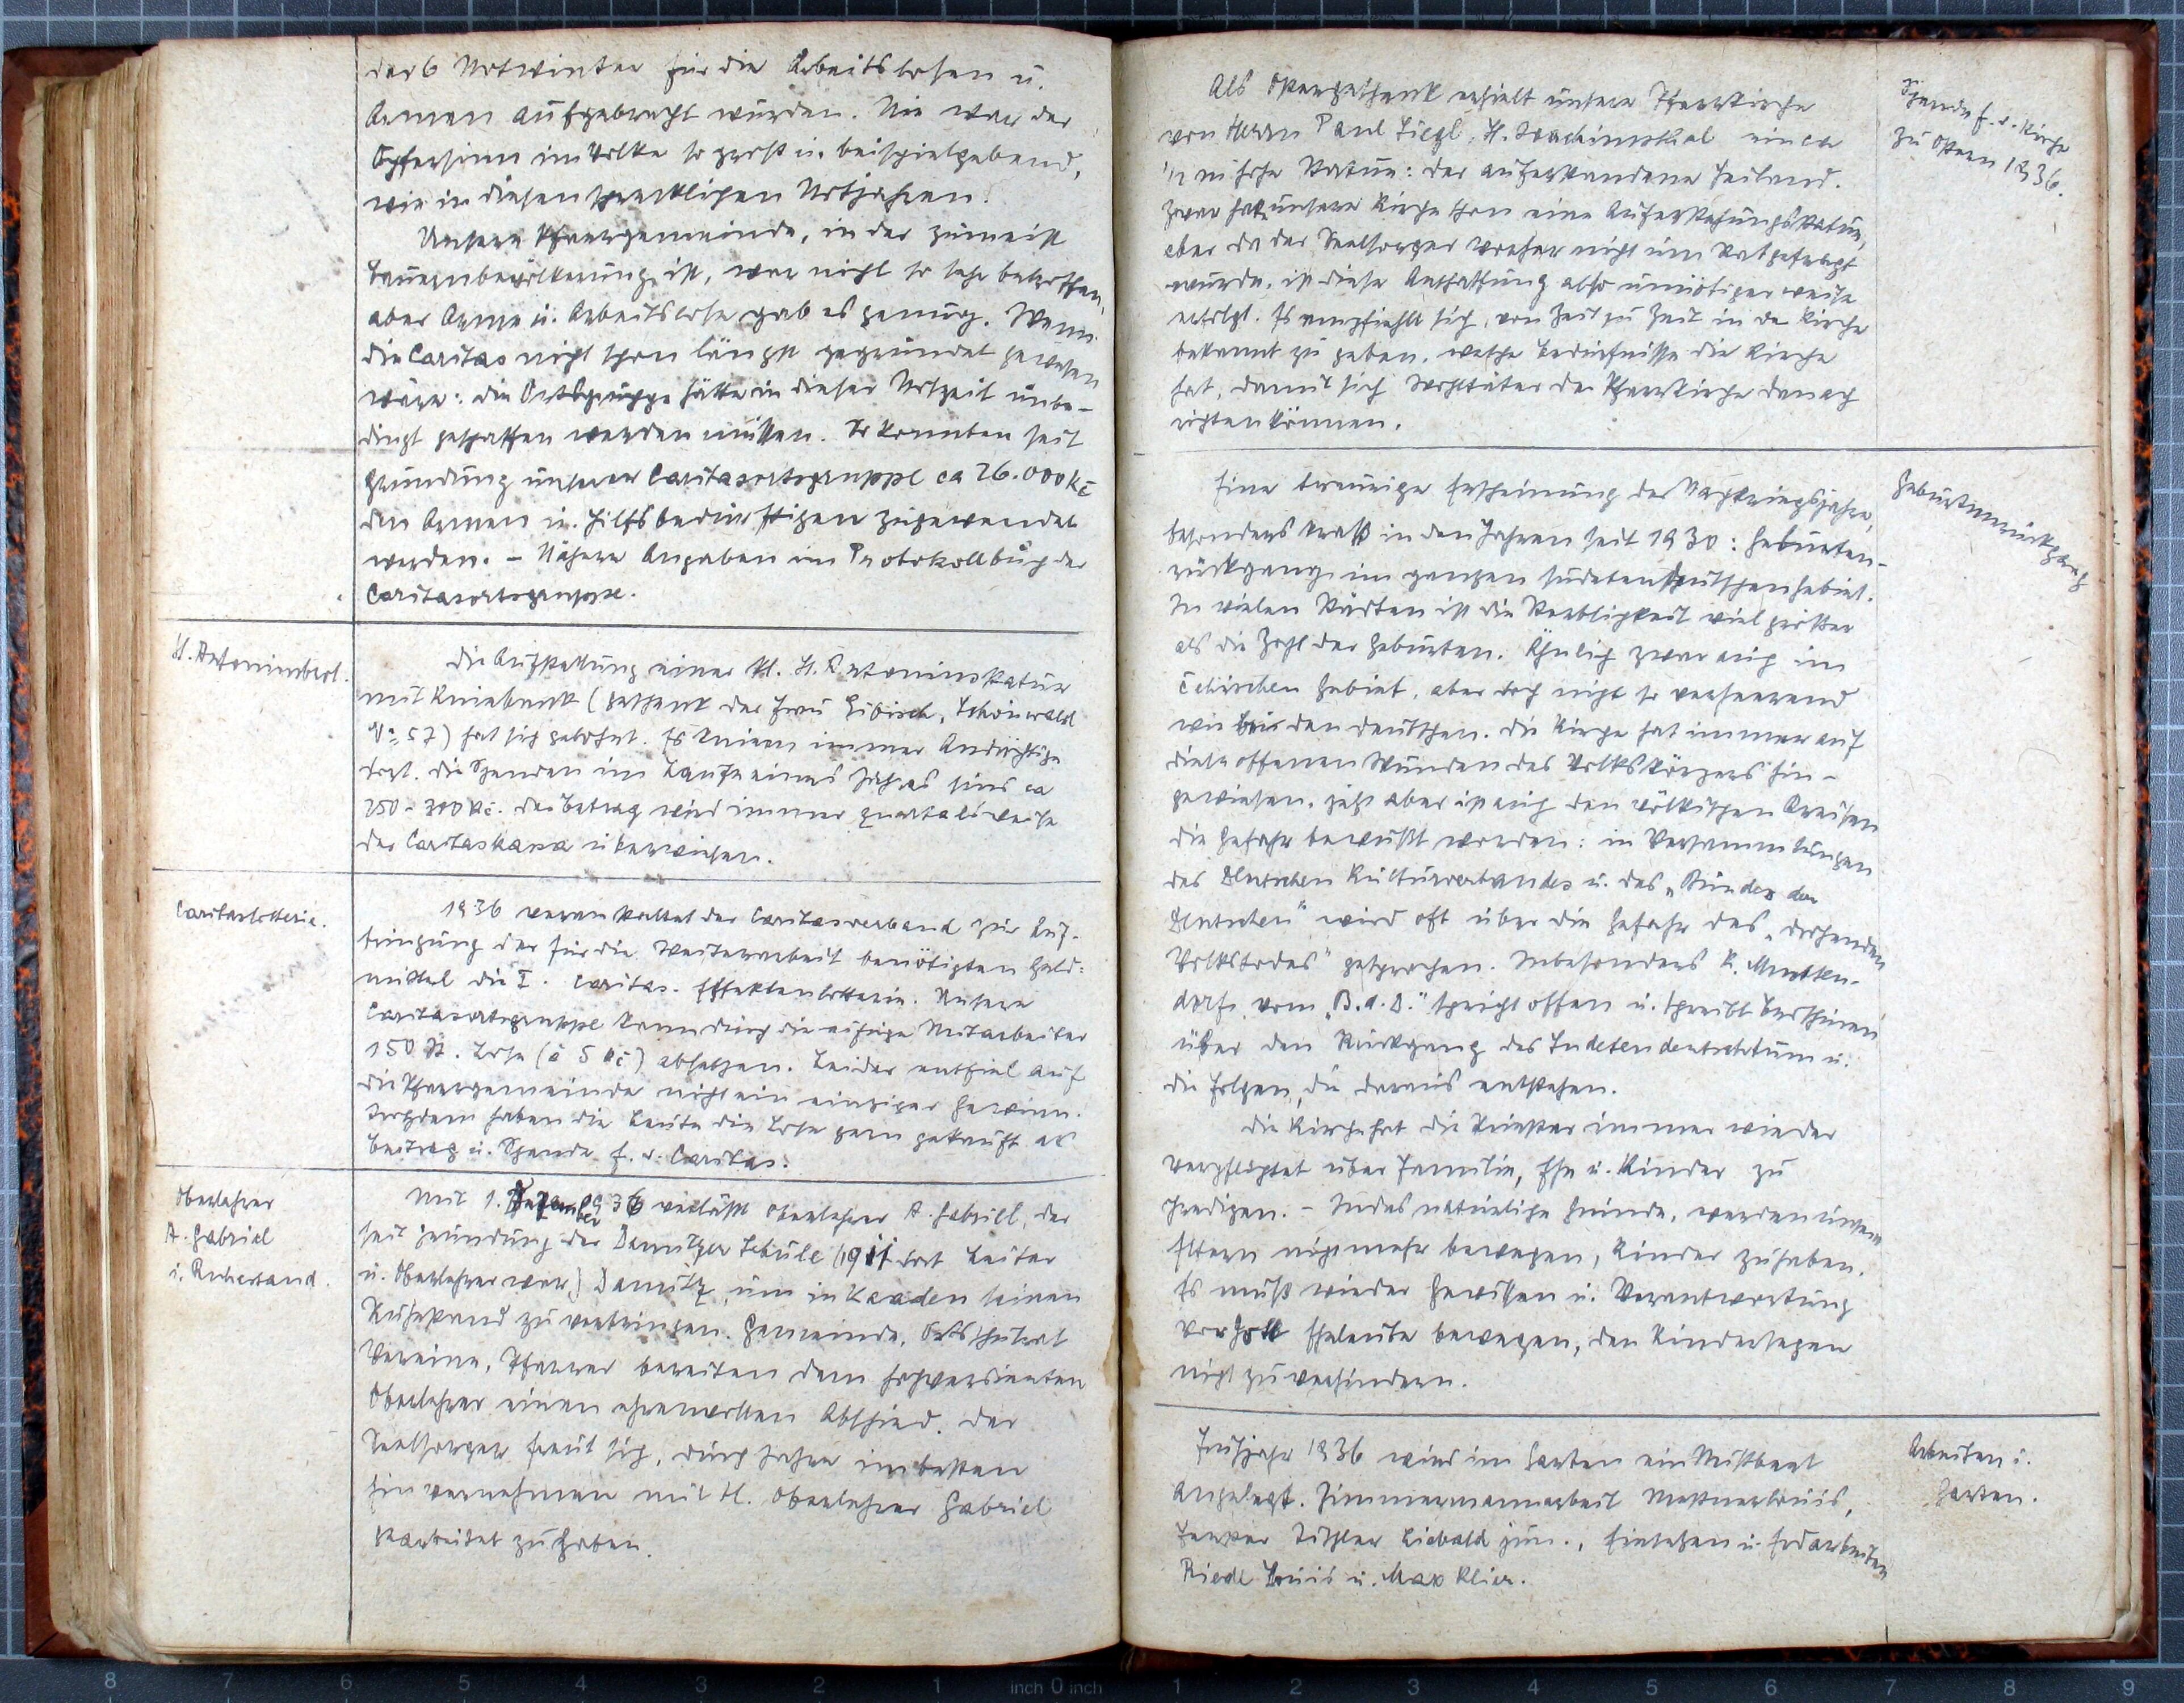 der 6 Notwinter für die Arbeitslosen u.
Armen aufgebracht wurden. Nie war der
Opfersinn im Volke so groß u. beispielgebend,
wie in diesen schrecklichen Notjahren!
Unsere Pfarrgemeinde, in der zumeist
Bauernbevölkerung ist, war nicht so sehr betroffen,
aber Arme u. Arbeitslose gab es genug. Wenn
die Caritas nicht schon längst gegründet gewesen
wäre: die Ortsgruppe hätte in dieser Notzeit unbe-
dingt geschaffen werden müssen. So konnten seit
Gründung unserer Caritasortsgruppe ca 26.000 Kč
den Armen u. Hilfsbedürftigen zugewendet
werden. – Nähere Angaben im Protokollbuch der
Caritasortsgruppe.
H. Antoniusbrot.
Die Aufstellung einer kl. H. Antoniusstatue
mit Kniebank (Geschenk der Frau Hibisch, Schönwald
No 57) hat sich gelohnt. Es knieen immer Andächtige
dort. Die Spenden im Laufe eines Jahres sind ca
250 - 300 Kč. Der Betrag wird immer quartalsweise
der Caritaskassa überwiesen.
Caritaslotterie.
1936 veranstaltet der Caritasverband zur Auf-
bringung der für die Weiterarbeit benötigten Geld-
mittel die I. Caritas-Effektenlotterie. Unsere
Caritasortsgruppe kann durch die eifrige Mitarbeiter
150 St. Lose (à 5 Kč) absetzen. Leider entfiel auf
die Pfarrgemeinde nicht ein einziger Gewinn.
Trotzdem haben die Leute die Lose gern gekauft als
Beitrag u. Spende f. d. Caritas.
Oberlehrer
A. Gabriel
i. Ruhestand.
Mit 1. Dezember 1936 verläßt Oberlehrer A. Gabriel, der
seit Gründung der Damitzer Schule (1911 dort Leiter
u. Oberlehrer war) Damitz, um in Kaaden seinen
Ruhestand zu verbringen. Gemeinde, Ortsschulrat
Vereine, Pfarrer bereiten dem hochverdienten
Oberlehrer einen ehrenvollen Abschied. Der
Seelsorger freut sich, durch Jahre im besten
Einvernehmen mit H. Oberlehrer Gabriel
gearbeitet zu haben.
Als Ostergeschenk erhielt unsere Pfarrkirche
von Herrn Paul Siegl, St. Joachimsthal eine ca
1/2 m hohe Statue: der auferstandene Heiland.
Zwar hat unsere Kirche schon eine Auferstehungsstatue,
aber da der Seelsorger vorher nicht um Rat gefragt
wurde, ist diese Anschaffung also unnötiger weise
erfolgt. Es empfiehlt sich, von Zeit zu Zeit in der Kirche
bekannt zu geben, welche Bedürfnisse die Kirche
hat, damit sich Wohltäter der Pfarrkirche danach
richten können.
Spende f. d. Kirche
zu Ostern 1936.
Eine traurige Erscheinung der Nachkriegsjahre,
besonders kraß in den Jahren seit 1930: Geburten-
rückgang im ganzen sudetendeutschen Gebiet.
In vielen Städten ist die Sterblichkeit viel größer
als die Zahl der Geburten. Ähnlich zwar auch im
čechischen Gebiet, aber doch nicht so verheerend
wie bei den Deutschen. Die Kirche hat immer auf
diese offenen Wunden des Volkskörpers hin-
gewiesen, jetzt aber ist auch den völkischen Kreisen
die Gefahr bewußt worden: in Versammlungen
des Deutschen Kulturverbandes u. des „Bundes der
Deutschen" wird oft über die Gefahr des „drohenden
Volkstodes" gesprochen. Insbesonders
vom „B.d.D." spricht offen u. schreibt
über den Rückgang des Sudetendeutschtum u.
die Folgen, die daraus entstehen.
Die Kirche hat die Priester immer wieder
verpflichtet über Familie, Ehe u. Kinder zu
predigen. – Indes natürliche Gründe, werden unsere
Eltern nicht mehr bewegen, Kinder zu haben.
Es muß wieder Gewissen u. Verantwortung
vor Gott Eheleute bewegen, den Kindersegen
nicht zu verhindern.
Geburtenrückgang
Frühjahr 1936 wird im Garten ein Mistbeet
angelegt. Zimmermannarbeit Louis,
Fenster Tischler Liebald jun., Einsetzen u. Erdarbeiten
Riedl Louis u. Max Klier.
Arbeiten i.
Garten.